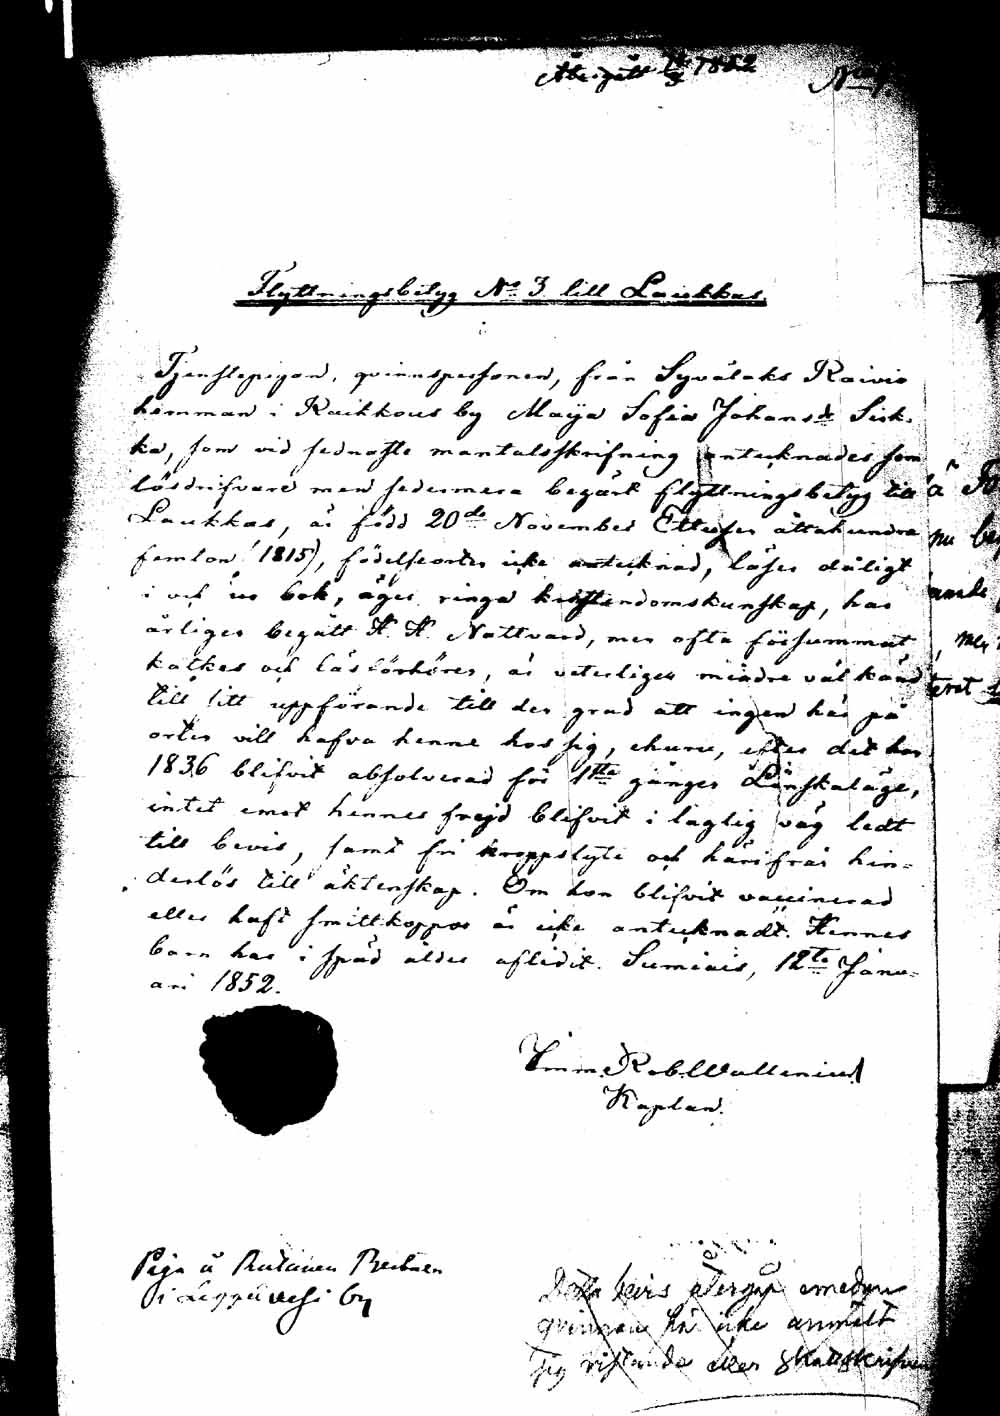 Återgått 14/3 1852
Flyttningsbetyg No 3 till Laukkas.
Tjenstepigan, qvinnspersonen, från Syvälaks Raivio
hemman i Raikkous by Maija Sofia Johansdr Sisk-
ka, som vid sednaste mantalsskrifning antecknades som
lösdrifvare men sedermera begärt flyttningsbetyg till
Laukkas, är född 20de November Ettusen åttahundra
femton (1815), födelseorten icke antecknad, läser dåligt
i och ur bok, äger ringa kristendomskunskap, har
årligen begått H. H. Nattvard, men ofta försummat
katkes och läsförhörer, är veterligen mindre väl känd
till sitt uppförande till den grad att ingen här på
orten vill hafva henne hos sig, ehuru, efter det hon
1836 blifvit absolverad för 1sta gången Lönskaläge,
intet emot hennes frejd blifvit i laglig väg ledt
till bevis, samt fri kroppslyte och härifrån hin-
derlös till äktenskap. Om hon blifvit vaccinerad
eller haft smittkoppor är icke antecknadt. Hennes
barn har i späd ålder aflidit. Sumiais, 12te Janu-
ari 1852.
Imm. Rob. Wallenius
Kaplan.
Piga å Rutanen
i Leppävesi by
Detta bevis återgår emedan
qvinnan här icke anmält
sig vistande eller skattskrifven